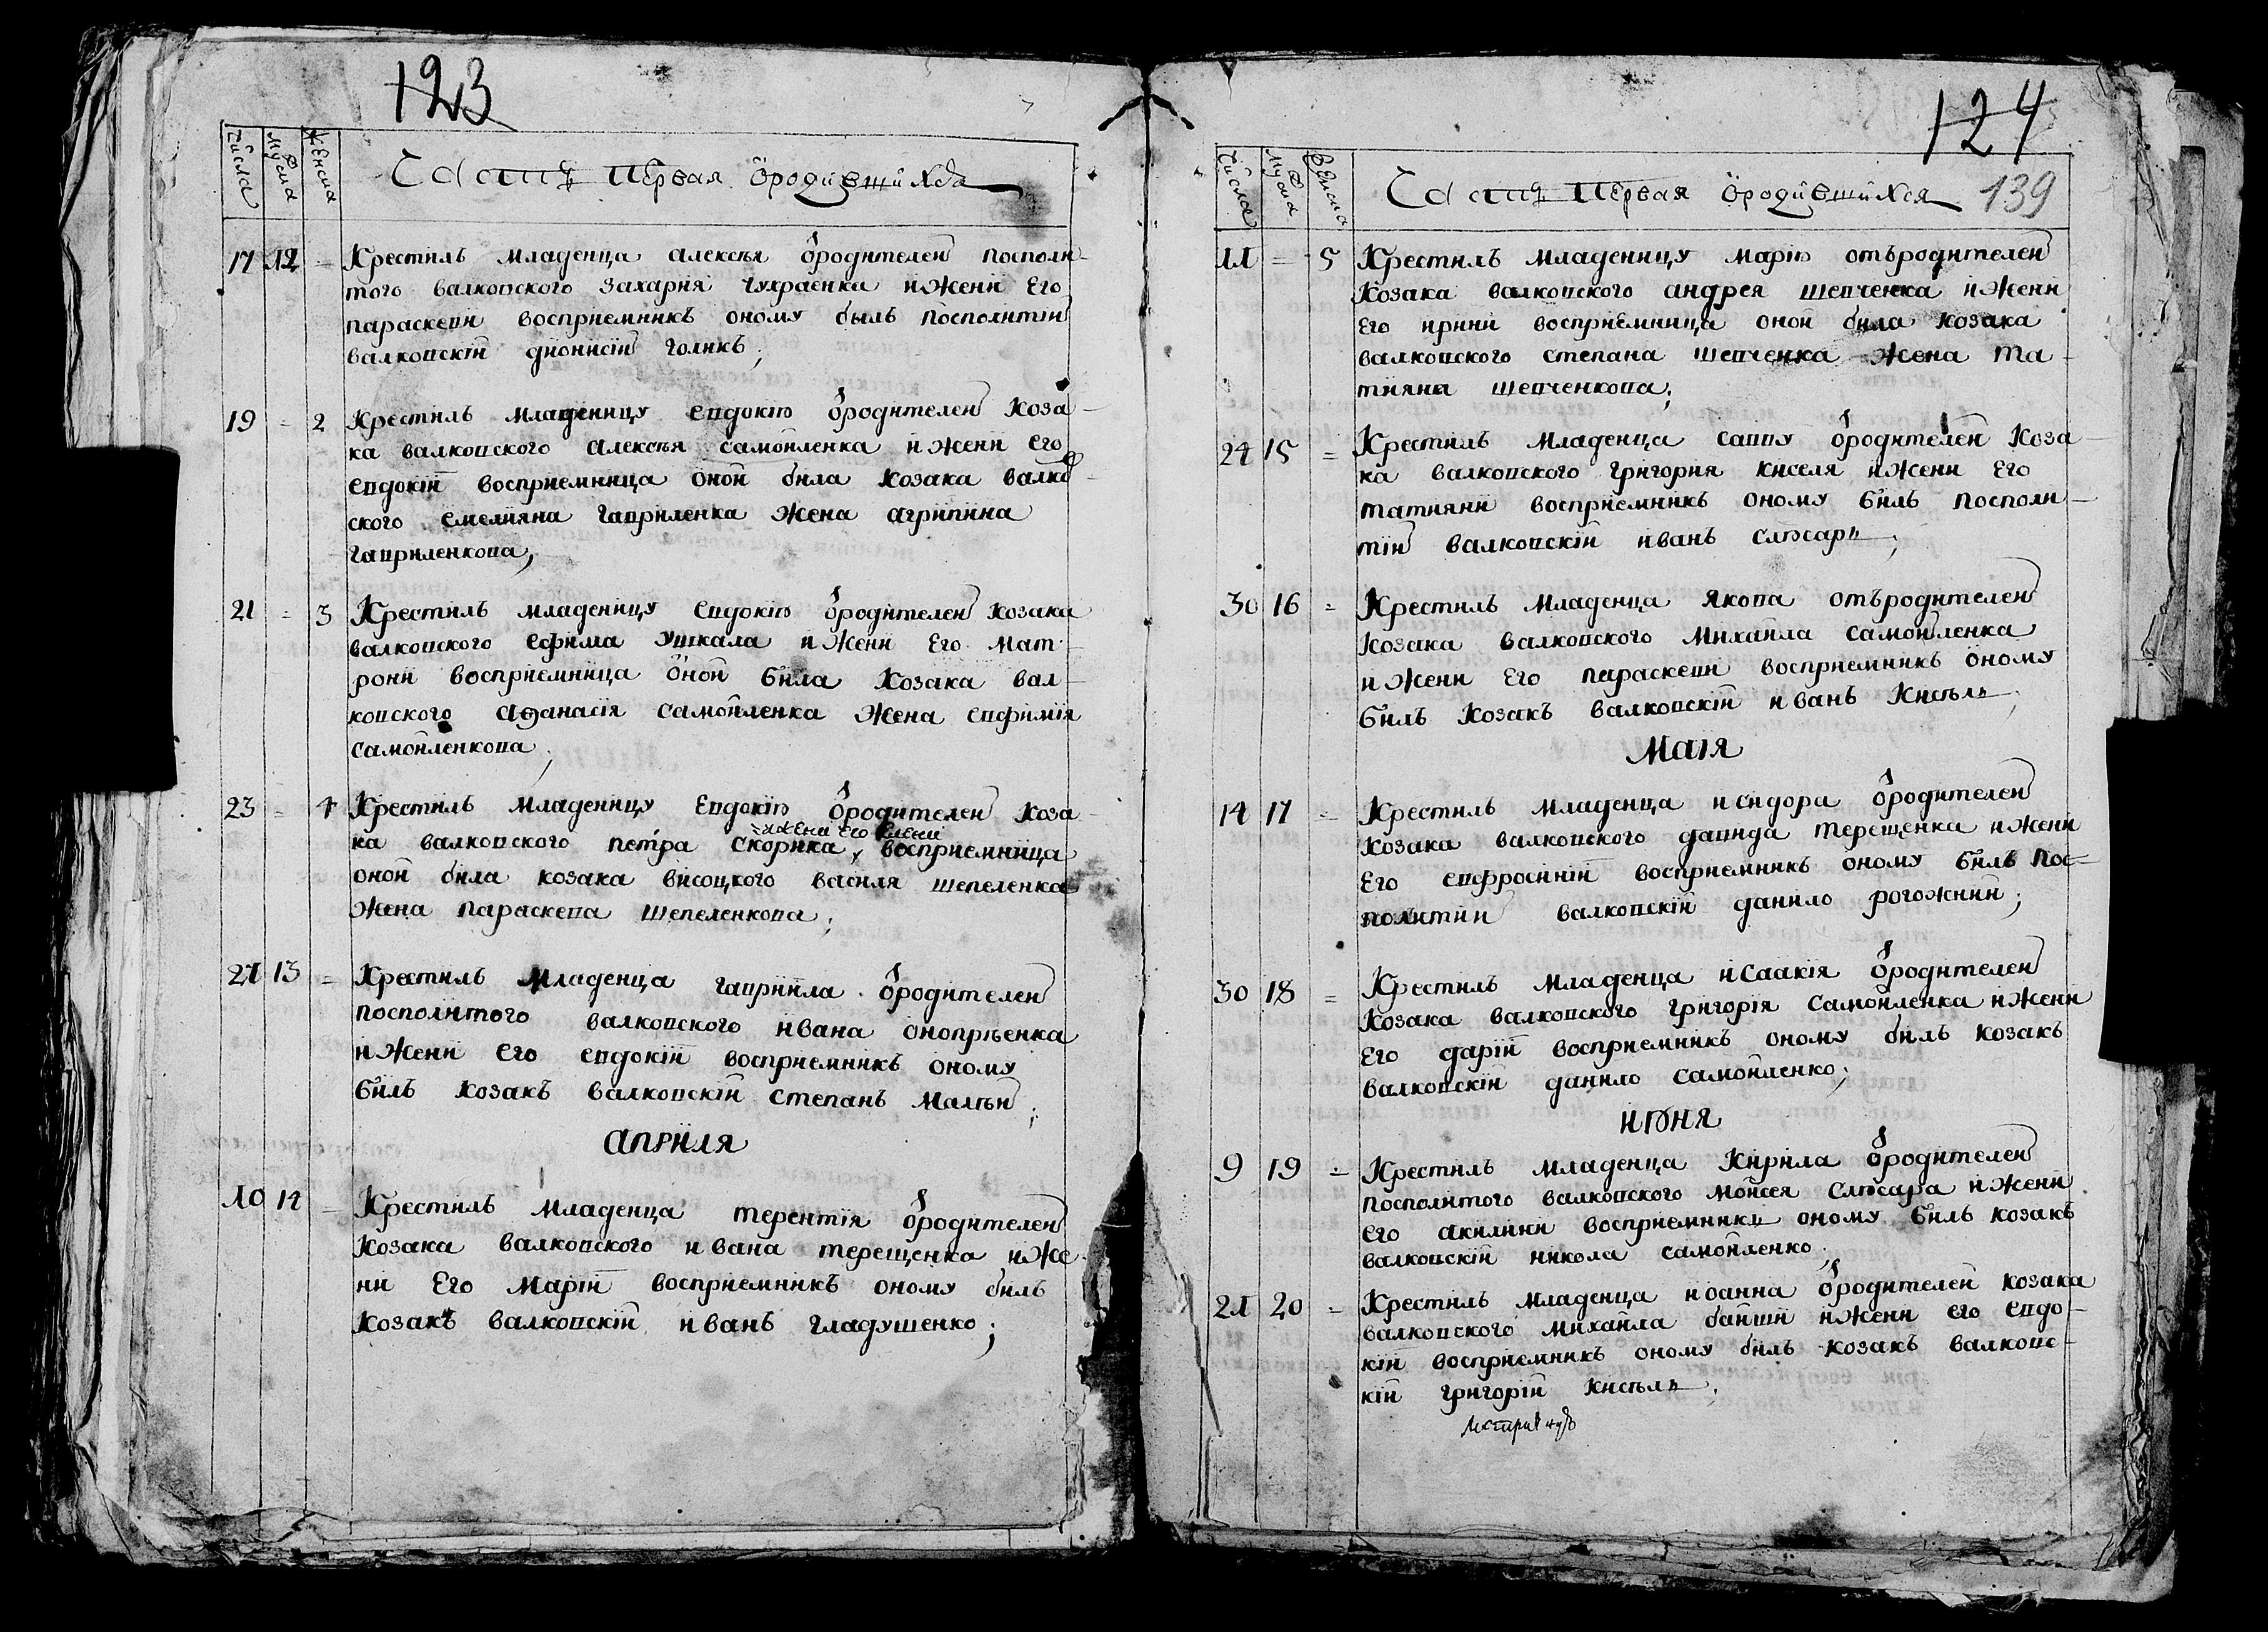 123
Числа Мужска Женска
Часть первая ѡродившихся
17 12 = Крестилъ младенца алексѣя ѿродителей посполи-
того валковского захария чухраенка и жени его
параскеви восприемникъ оному былъ посполитій
валковскій дионисій голикъ;
19 = 2 Крестилъ младеницу евдокію ѿродителей коза-
ка валковского алексѣя самойленка и жени его
евдокіи восприемница оной била козака валко-
ского емелияна гавриленка жена агрипина
гавриленкова;
21 = 3 Крестилъ младеницу евдокію ѿродителей козака
валковского ефима ушкала и жени его мат-
рони восприемница оной била козака вал-
ковского афанасія самойленка жена евфимія
самойленкова;
23 = 4 Крестилъ младеницу евдокію ѿродителей коза-
=и жени его елени
ка валковского петра скорика, восприемница
оной била козака висоцкого василя шепеленка
жена параскева шепеленкова;
27 13 = Крестилъ младенца гавриила ѿродителей
посполитого валковского ивана онопрѣенка
и жени его евдокіи восприемникъ оному
билъ козакъ валковскій степанъ малѣй;
априля
10 14 = Крестилъ младенца терентія ѿродителей
козака валковского ивана терещенка и же-
ни его маріи восприемникъ оному билъ
козакъ валковскій иванъ гладушенко;
124
Числа Мужска Женска
Часть первая ѡродившихся 139
11 = 5 Крестилъ младеницу марію отъродителей
козака валковского андрея шевченка и жени
его ирини восприемница оной била козака
валковского степана шевченка жена та-
тияна шевченкова;
24 15 = Крестилъ младенца савву ѿродителей коза-
ка валковского григория киселя и жени его
татияни восприемникъ оному билъ посполи-
тій валковскій иванъ слюсарь;
30 16 = Крестилъ младенца якова отъродителей
козака валковского михаила самойленка
и жени его параскеви восприемникъ оному
билъ козакъ валковскій иванъ кисѣль;
маія
14 17 = Крестилъ младенца исидора ѿродителей
козака валковского давида терещенка и жени
его евфросиніи восприемникъ оному билъ пос-
политій валковскій данило рогожний;
30 18 = Крестилъ младенца исаакія ѿродителей
козака валковского григорія самойленка и жени
его даріи восприемникъ оному билъ козакъ
валковскій данило самойленко;
июня
9 19 = Крестилъ младенца кирила ѿродителей
посполитого валковского моисея слюсара и жени
его акилини восприемникъ оному билъ козакъ
валковскій никола самойленко;
21 20 = Крестилъ младенца иоанна ѿродителей козака
валковского михаила баиши и жени его евдо-
кіи восприемникъ оному билъ козакъ валковс-
кій григорій кисѣль;